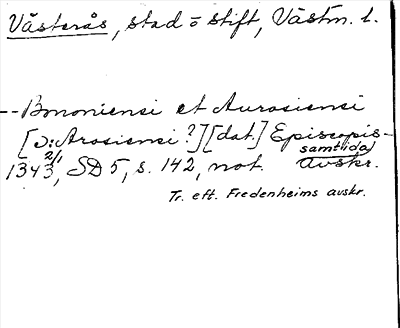 Västerås, stad o stift, Västm. l.
-- Bononiensi et Aurosiensi
[ɔ: Arosiensi?] [dat.] Episcopis -
1343 2/1, SD 5, s. 142, not. samtida avskr.
Tr. eft. Fredenheims avskr.